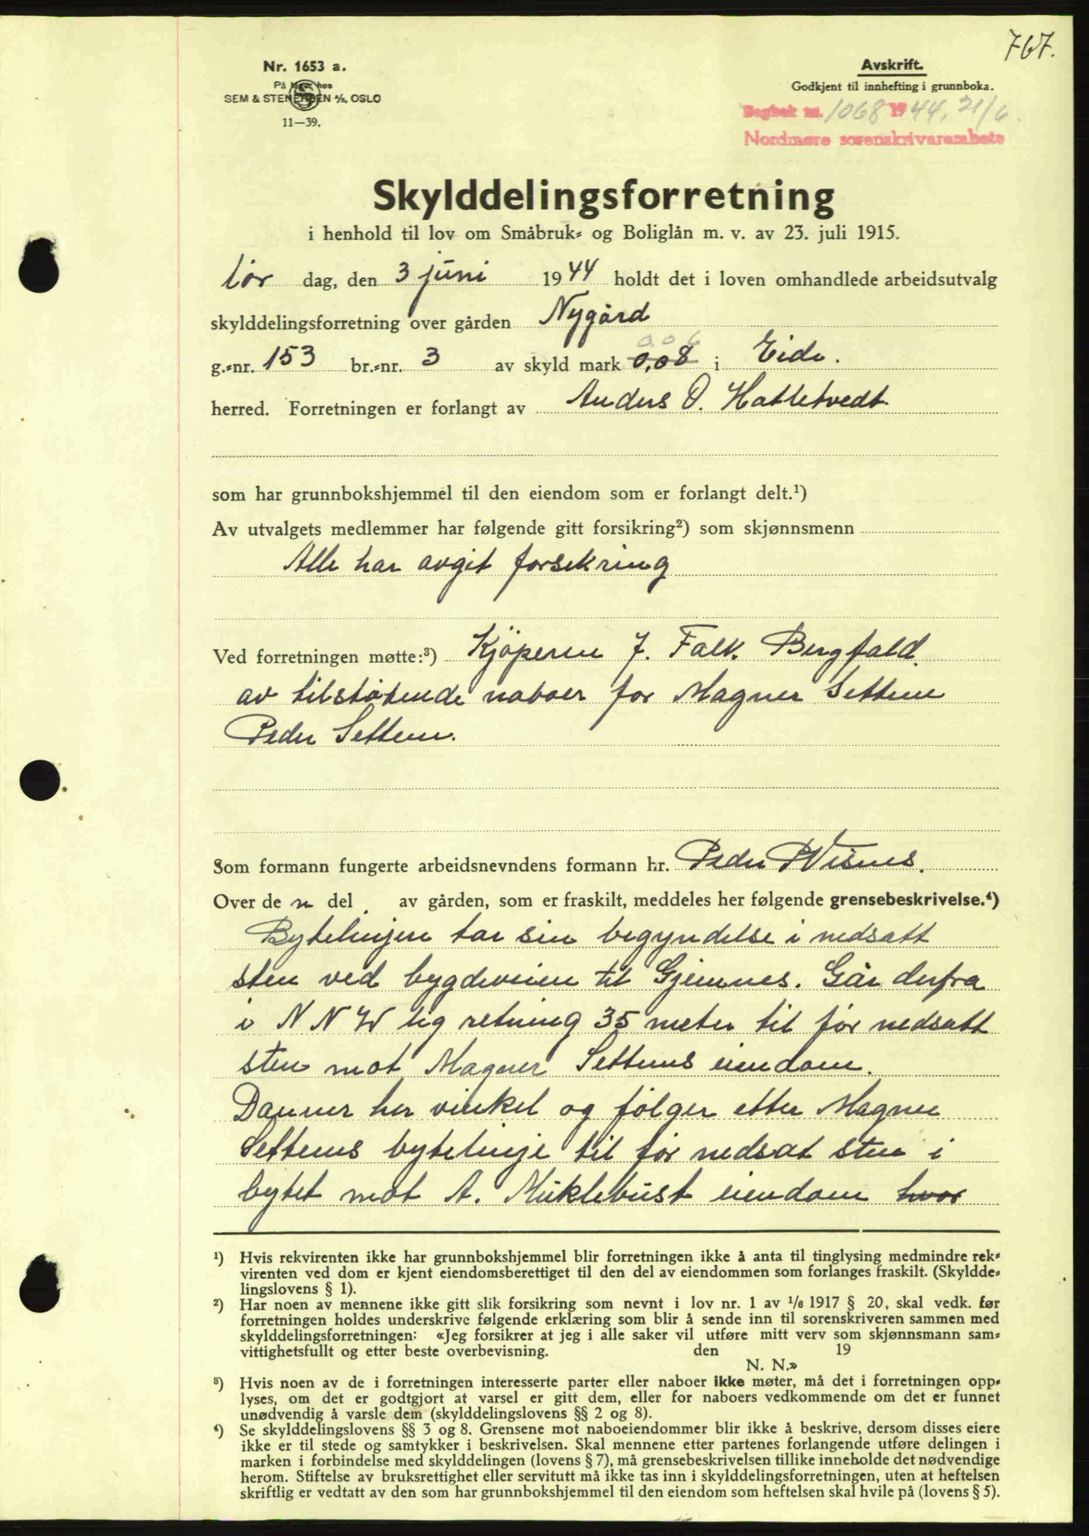 767.
Nr. 1653 a.
På lager hos
SEM & STENERSEN A/S, OSLO
11—39.
Avskrift.
Godkjent til innhefting i grunnboka.
Dagbok nr. 1068 1944, 21/6.
Nordmøre sorenskrivarembete
Skylddelingsforretning
i henhold til lov om Småbruk- og Boliglån m. v. av 23. juli 1915.
Lør dag, den 3 juni 1944 holdt det i loven omhandlede arbeidsutvalg
skylddelingsforretning over gården Nygård
0.06
g.-nr. 153 br.-nr. 3 av skyld mark 0,08 i Eide.
herred. Forretningen er forlangt av Anders O. Hatletvedt
som har grunnbokshjemmel til den eiendom som er forlangt delt.¹)
Av utvalgets medlemmer har følgende gitt forsikring²) som skjønnsmenn
Alle har avgit forsikring
Ved forretningen møtte:³) Kjøperen J. Falk Bergfald.
av tilstøtende naboer for Magner Settem
Peder Settem.
Som formann fungerte arbeidsnevndens formann hr. Peder Visnes.
Over de n del av gården, som er fraskilt, meddeles her følgende grensebeskrivelse.⁴)
Bytelinjen tar sin begyndelse i nedsatt
sten ved bygdeveien til Gjemnes. Går derfra
i NNW lig retning 35 meter til før nedsatt
sten mot Magner Settems eiendom.
Danner her vinkel og følger etter Magner
Settems bytelinje til før nedsat sten i
bytet mot A. Müklebust eiendom hvor
¹) Hvis rekvirenten ikke har grunnbokshjemmel blir forretningen ikke å anta til tinglysing medmindre rek-
virenten ved dom er kjent eiendomsberettiget til den del av eiendommen som forlanges fraskilt. (Skyldde-
lingslovens § 1).
²) Har noen av mennene ikke gitt slik forsikring som nevnt i lov nr. 1 av 1/6 1917 § 20, skal vedk. før
forretningen holdes underskrive følgende erklæring som blir å sende inn til sorenskriveren sammen med
skylddelingsforretningen: «Jeg forsikrer at jeg i alle saker vil utføre mitt verv som skjønnsmann sam-
vittighetsfullt og etter beste overbevisning. den 19
N. N.»
³) Hvis noen av de i forretningen interesserte parter eller naboer ikke møter, må det i forretningen opp-
lyses, om det er godtgjort at varsel er gitt dem, eller for naboers vedkommende om det er funnet
unødvendig å varsle dem (skylddelingslovens §§ 2 og 8).
⁴) Se skylddelingslovens §§ 3 og 8. Grensene mot naboeiendommer blir ikke å beskrive, dersom disses eiere
ikke er til stede og samtykker i beskrivelsen. Skal mennene etter partenes forlangende utføre delingen i
marken i forbindelse med skylddelingen (lovens § 7), må grensebeskrivelsen tillike inneholde det nødvendige
herom. Stiftelse av bruksrettighet eller servitutt må ikke tas inn i skylddelingsforretningen, uten at heftelsen
skriftlig er vedtatt av den som har grunnbokshjemmel til den eiendom som heftelsen skal hvile på (lovens § 5).